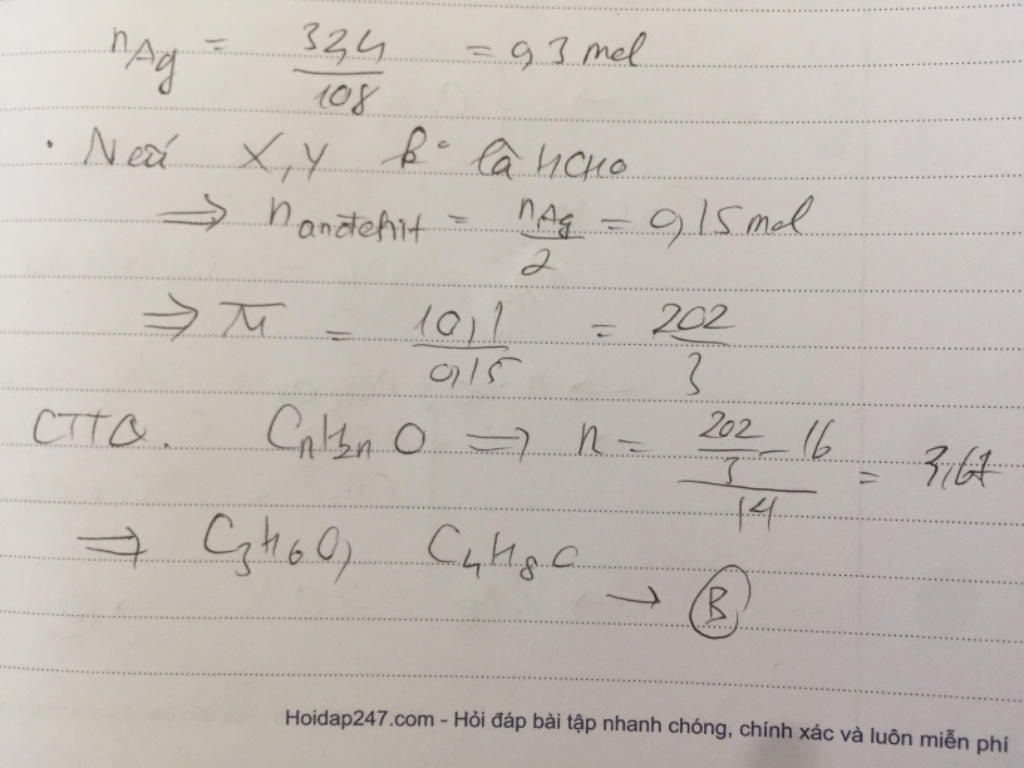 nAg = 32,4/108 = 0,3 mol
· Nếu X, Y k° là HCHO
=> nanđehit = nAg/2 = 0,15 mol
=> M̅ = 10,1/0,15 = 202/3
CTTQ. CnH2nO => n = (202/3 - 16)/14 = 3,67
=> C3H6O, C4H8O
→ B
Hoidap247.com - Hỏi đáp bài tập nhanh chóng, chính xác và luôn miễn phí